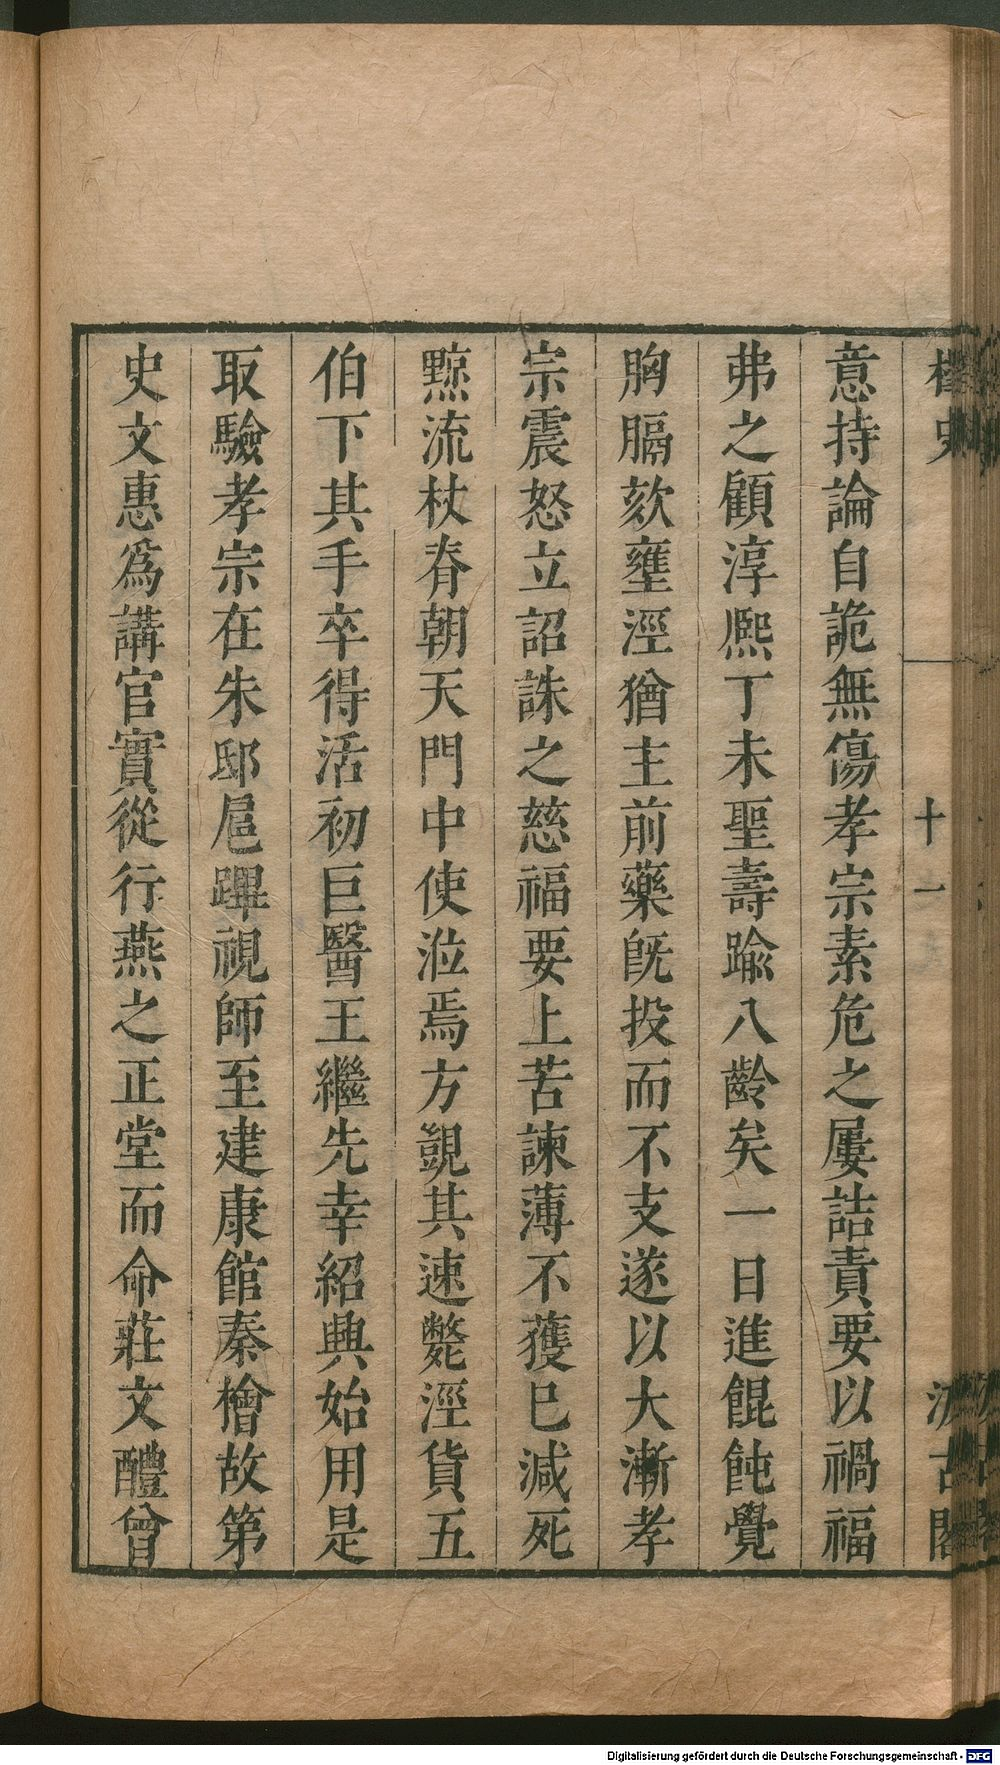 桯史 十一 汲古閣
意持論自詭無傷孝宗素危之屢詰責要以禍福
弗之顧淳熙丁未聖壽踰八齡矣一日進餛飩覺
胸膈欬壅涇猶主前藥旣投而不支遂以大漸孝
宗震怒立詔誅之慈福要上苦諫薄不獲巳減死
黥流杖脊朝天門中使涖焉方覬其速斃涇貨五
伯下其手卒得活初巨醫王繼先幸紹興始用是
取驗孝宗在朱邸扈蹕視師至建康館秦檜故第
史文惠爲講官實從行燕之正堂而命莊文醴曾
Digitalisierung gefördert durch die Deutsche Forschungsgemeinschaft - DFG